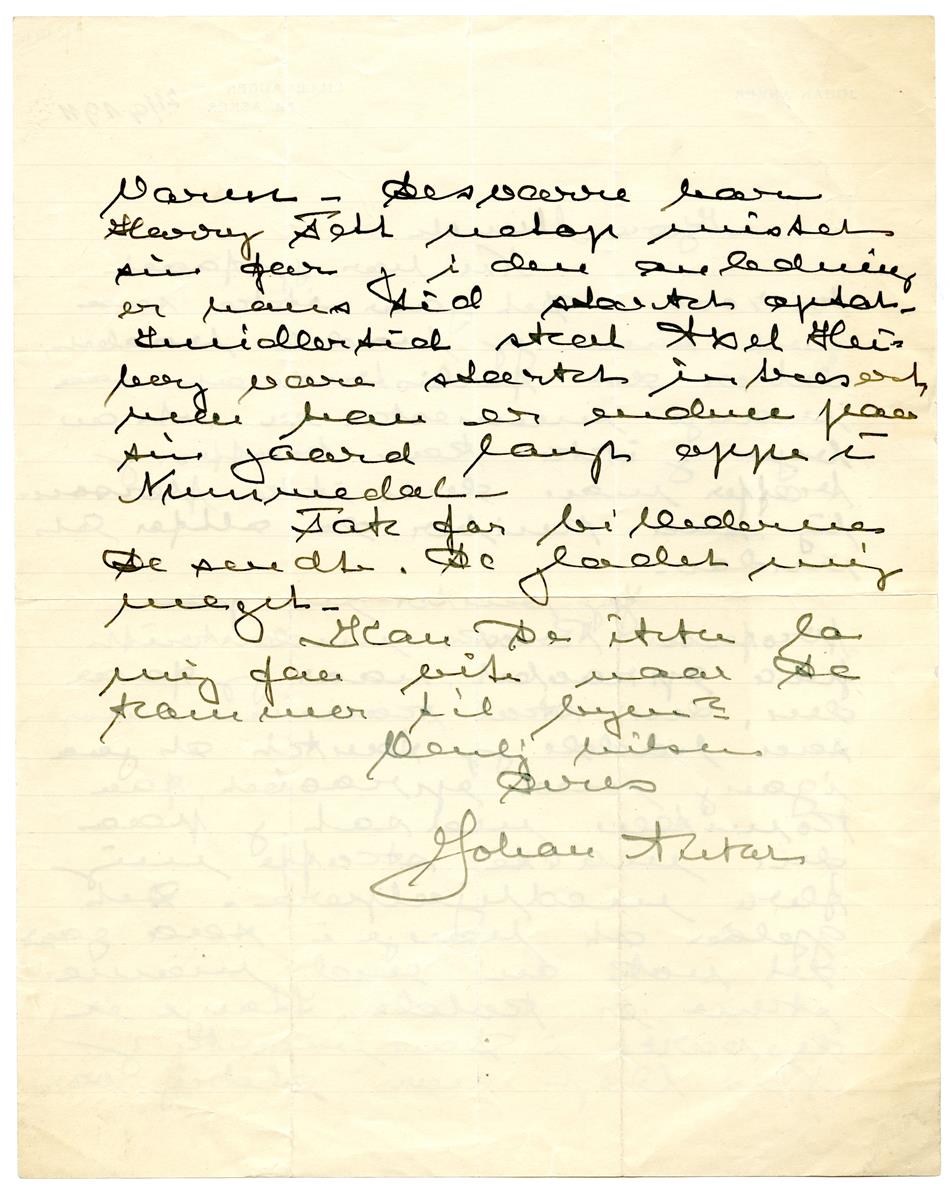 Varen – Desværre har
Harry Fett netop mistet
sin far og i den anledning
er hans tid stærkt optat –
Imidlertid skal Axel Hei-
berg være stærkt intresert,
men han er endnu paa
sin gaard langt oppe i
Nummedal –
Tak for billederne
De sendte. De glædet mig
meget –
Kan De ikke la
mig faa vite naar De
kommer til byen?
Venlig hilsen
Deres
Johan Anker